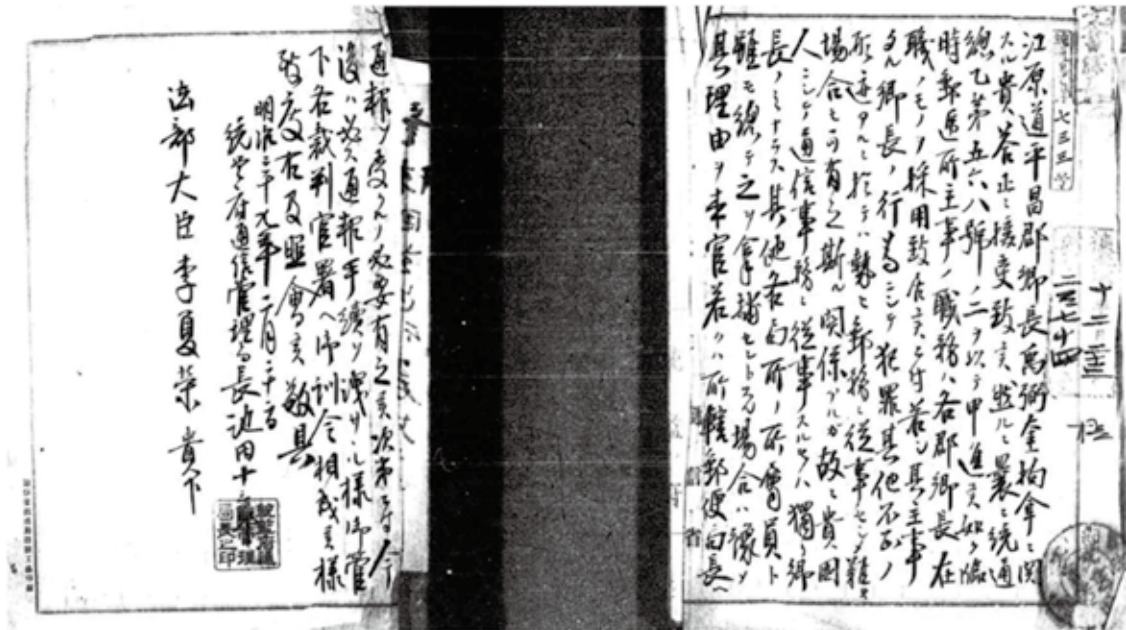 七三三号
江原道平昌郡郷長禹弼圭拘拿ニ関
スル貴答正ニ接受致候然ルニ曩ニ統通
総乙第五六八號ノ二ヲ以テ申進候如ク臨
時郵逓所主事ノ職務ハ各郡郷長在
職ノモノヲ採用致居候ニ付若シ其主事
タル郷長ノ行為ニシテ犯罪其他不正ノ
形迹アルニ於テハ勢ヒ郵務ニ従事セシメ難キ
場合モ可有之斯ル関係アルガ故ニ貴国
人ニシテ通信事務ニ従事スルモノハ獨リ郷
長ノミナラス其他各局所ノ所属員ト
雖モ総テ之ヲ拿捕セントスル場合ハ豫メ
其理由ヲ本官若クハ所轄郵便局長ヘ
通報ヲ受クルノ必要有之候次第ニ付今
後ハ必ス通報手續ヲ洩サヽル様御管
下各裁判官署ヘ御訓令相成候様
致度右及照會候敬具
明治三十九年二月二十日
統監府通信管理局長池田十
法部大臣李夏榮貴下